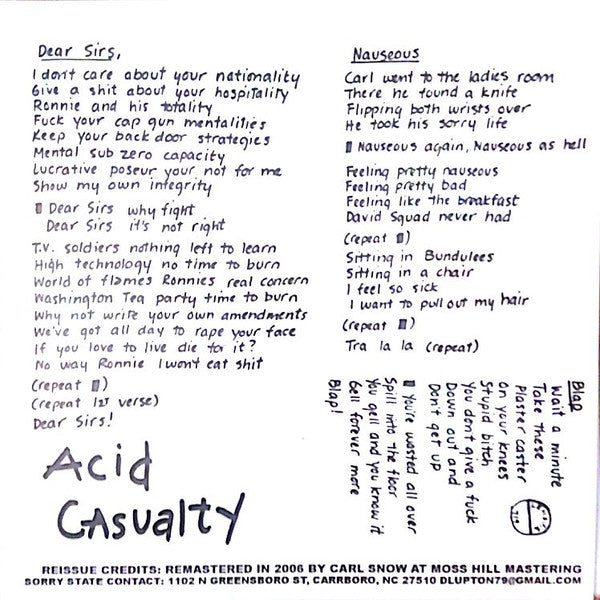 Dear Sirs,
I don't care about your nationality
Give a shit about your hospitality
Ronnie and his totality
Fuck your cap gun mentalities
Keep your back door strategies
Mental sub zero capacity
Lucrative poseur your not for me
Show my own integrity
Dear Sirs why fight
Dear Sirs it's not right
T.V. soldiers nothing left to learn
High technology no time to burn
World of flames Ronnies real concern
Washington Tea party time to burn
Why not write your own amendments
We've got all day to rape your face
If you love to live die for it?
No way Ronnie I wont eat shit
(repeat )
(repeat 1st verse)
Dear Sirs!
Acid
Casualty
Nauseous
Carl went to the ladies room
There he found a knife
Flipping both wrists over
He took his sorry life
Nauseous again, Nauseous as hell
Feeling pretty nauseous
Feeling pretty bad
Feeling like the breakfast
David Squad never had
(repeat )
Sitting in Bundulees
Sitting in a chair
I feel so sick
I want to pull out my hair
(repeat )
Tra la la (repeat)
Blap
Wait a minute
Take these
Plaster caster
On your knees
Stupid bitch
You don't give a fuck
Down out and
Don't get up
You're wasted all over
Spill into the floor
You gell and you know it
Gell forever more
Blap!
REISSUE CREDITS: REMASTERED IN 2006 BY CARL SNOW AT MOSS HILL MASTERING
SORRY STATE CONTACT: 1102 N GREENSBORO ST, CARRBORO, NC 27510 DLUPTON79@GMAIL.COM